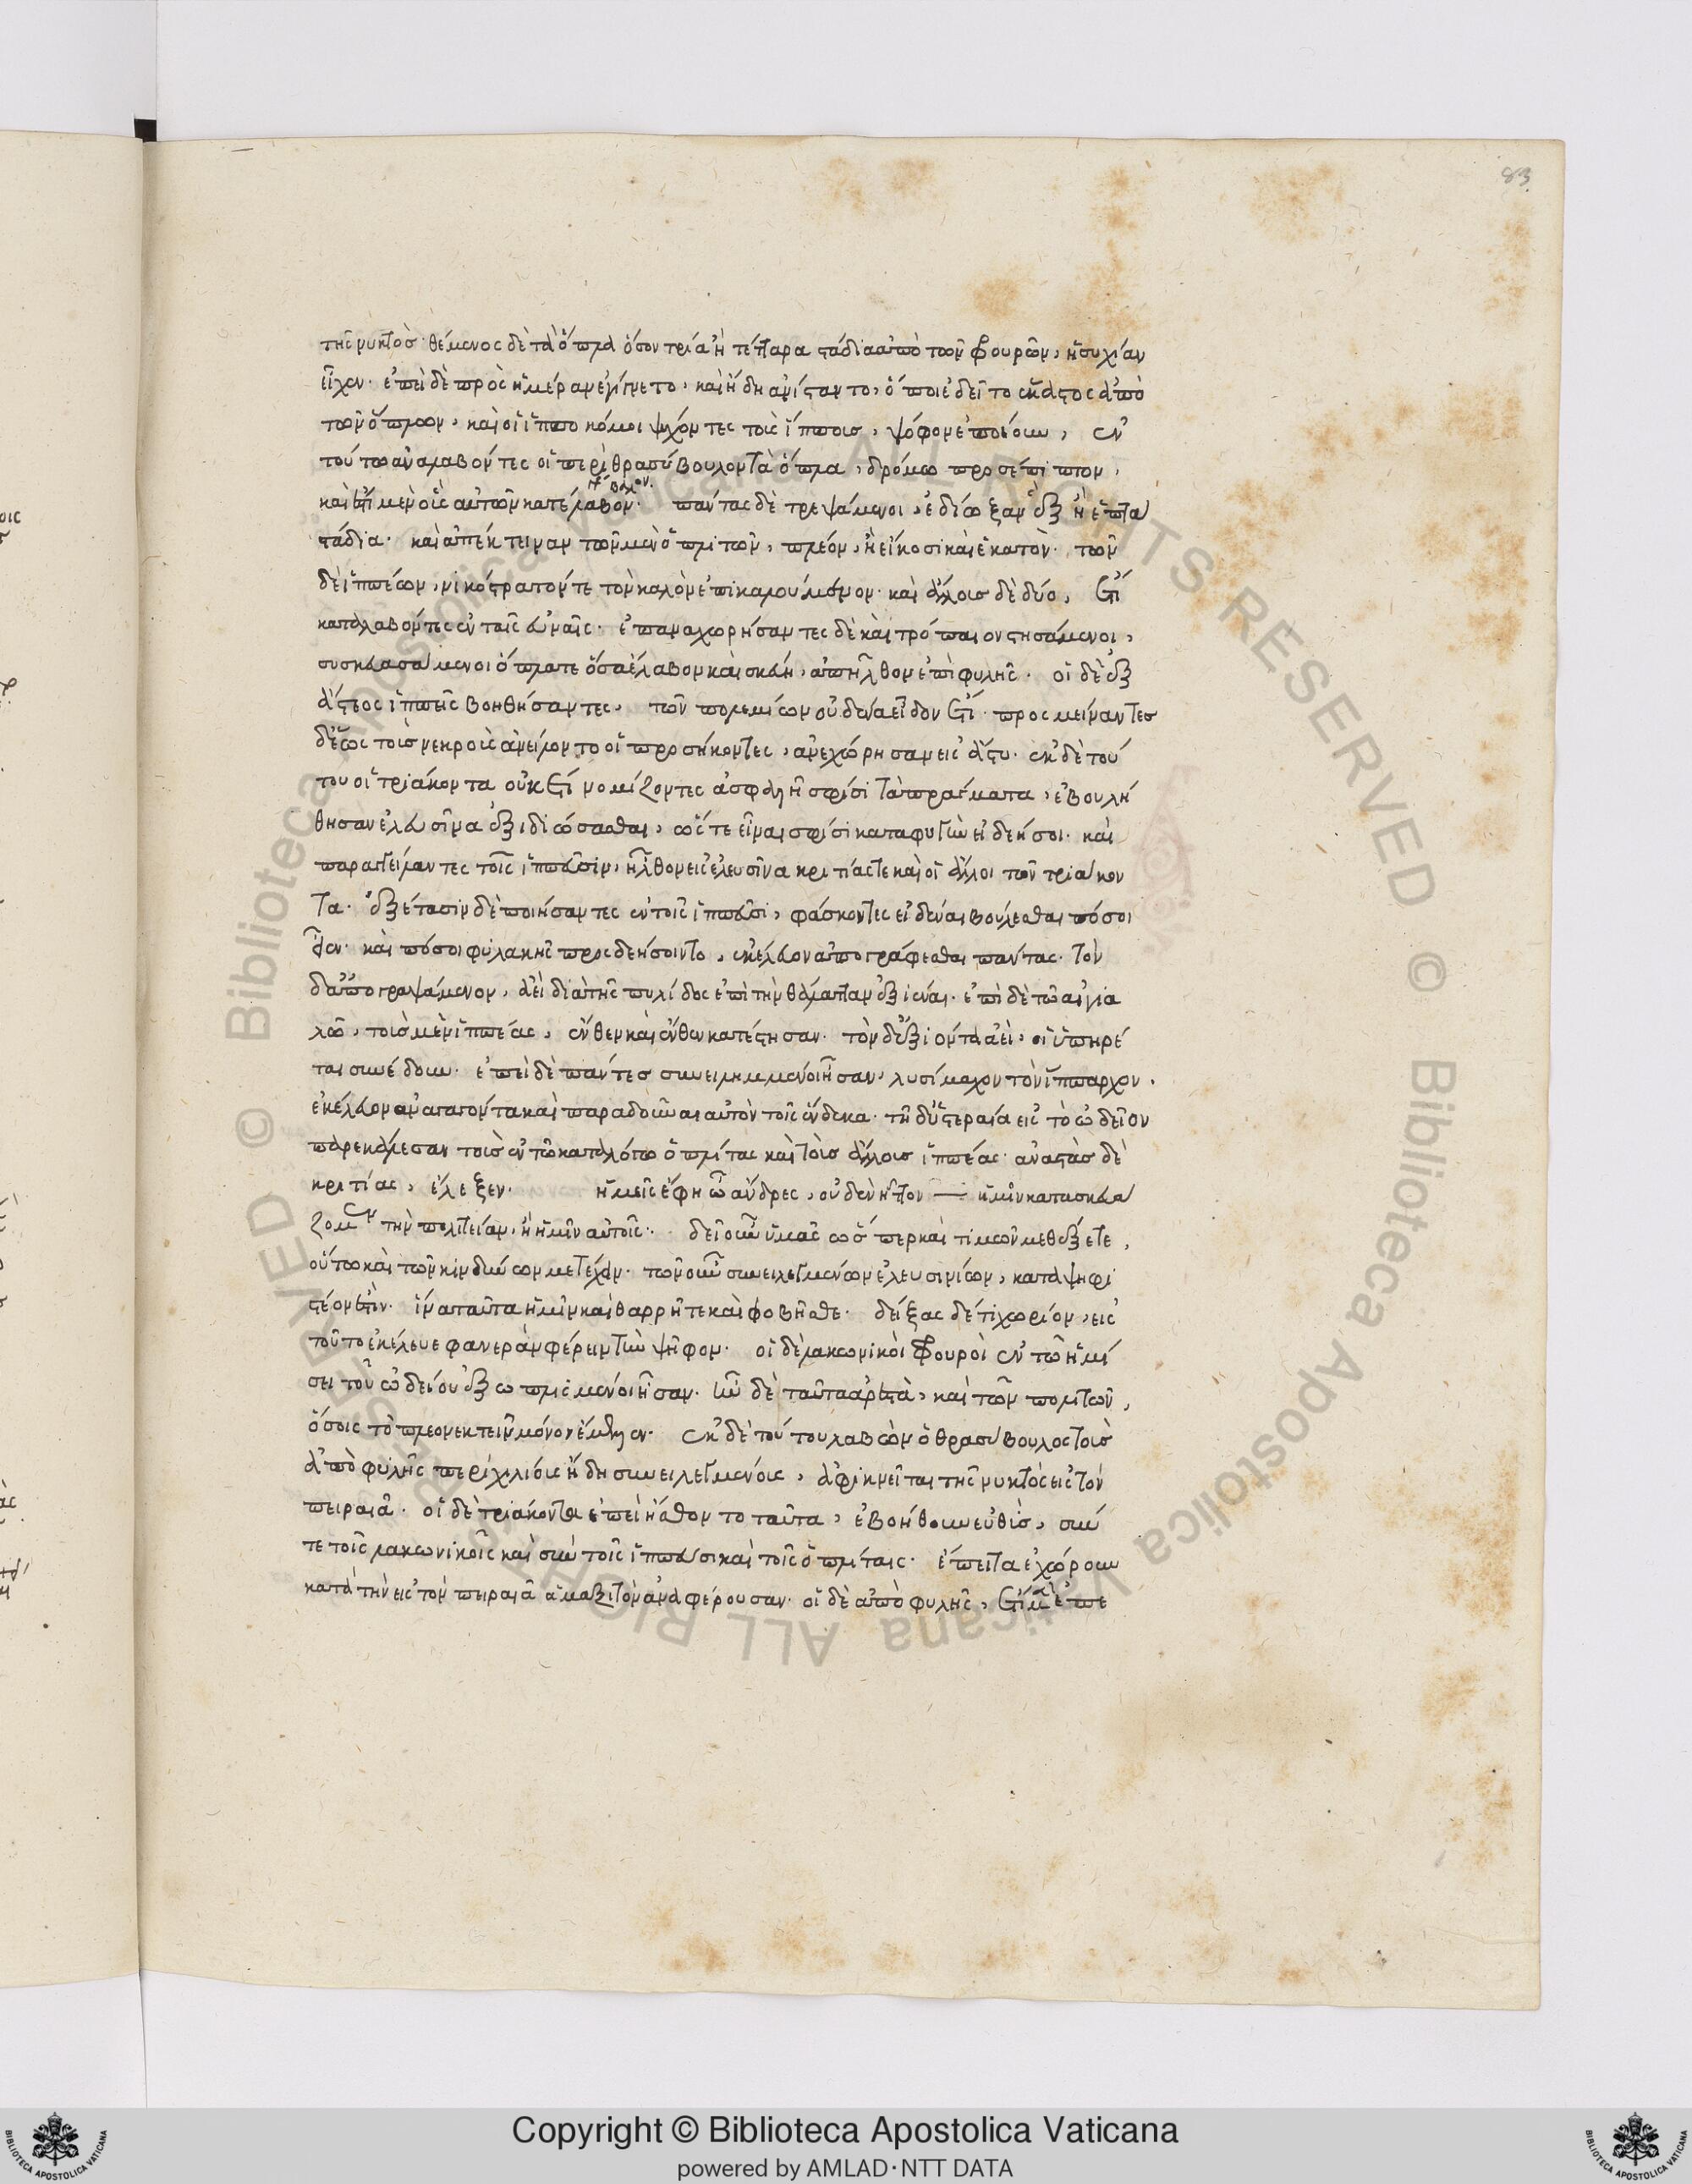 83
τῆς νυκτὸς· θέμενος δὲ τὰ ὅπλα ὅσον τρία ἢ τέτταρα στάδια ἀπὸ τῶν φρουρῶν, ἡσυχίαν
εἶχεν· ἐπεὶ δὲ πρὸς ἡμέραν ἐγίγνετο, καὶ ἤδη ἀνίσταντο, ὅποι ἐδεῖτο ἕκαστος ἀπὸ
τῶν ὅπλων, καὶ οἱ ἱπποκόμοι ψήχοντες τοὺς ἵππους, ψόφον ἐποίουν, ἐν
τούτω ἀναλαβόντες οἱ περὶ θρασύβουλον τὰ ὅπλα, δρόμω προσέπιπτον,
καὶ ἔστι μὲν οὓς αὐτῶν κατέλαβον· πάντας δὲ τρεψάμενοι, ἐδίωξαν ἓξ ἢ ἑπτὰ
στάδια· καὶ ἀπέκτειναν τῶν μὲν ὁπλιτῶν, πλέον, ἢ εἴκοσι καὶ ἑκατὸν· τῶν
δὲ ἱππέων, νικόστρατόν τε τὸν καλὸν ἐπικαλούμενον· καὶ ἄλλους δὲ δύο, ἔτι
καταλαβόντες ἐν ταῖς εὐναῖς· ἐπαναχωρήσαντες δὲ καὶ τρόπαιον στησάμενοι,
συσκευασάμενοι ὅπλα τε ὅσα ἔλαβον καὶ σκεύη, ἀπῆλθον ἐπὶ φυλῆς· οἱ δὲ ἐξ
ἄστεος ἱππεῖς βοηθήσαντες, τῶν πολεμίων οὐδένα εἶδον ἔτι· προσμείναντες
δὲ ἕως τοὺς νεκροὺς ἀνείλοντο οἱ προσήκοντες, ἀνεχώρησαν εἰς ἄστυ· ἐκ δὲ τού
του οἱ τριάκοντα οὐκ ἔτι νομίζοντες ἀσφαλῆ σφίσι τὰ πράγματα, ἐβουλή
θησαν ἐλευσῖνα ἐξιδιώσασθαι, ὥστε εἶναι σφίσι καταφυγὴν εἰ δεήσοι· καὶ
παραγγείλαντες τοῖς ἱππεῦσιν, ἦλθον εἰς ἐλευσῖνα κριτίας τε καὶ οἱ ἄλλοι τῶν τριάκον
τα· ἐξέτασίν δὲ ποιήσαντες ἐν τοῖς ἱππεῦσι, φάσκοντες εἰδέναι βούλεσθαι πόσοι
εἶεν· καὶ πόσοι φυλακῆς προσδεήσοιντο, ἐκέλευον ἀπογράφεσθαι πάντας· τὸν
δ᾽ ἀπογραψάμενον, ἀεὶ διὰ τῆς πυλίδος ἐπὶ τὴν θάλατταν ἐξιέναι· ἐπὶ δὲ τῶ αἰγια
λῶ, τοὺς μὲν ἱππέας, ἔνθεν καὶ ἔνθεν κατέστησαν· τὸν δ᾽ ἐξιόντα ἀεὶ, οἱ ὑπηρέ
ται συνέδουν· ἐπεὶ δὲ πάντες συνειλημμένοι ἦσαν, λυσίμαχον τὸν ἵππαρχον,
ἐκέλευον ἀναγαγόντα καὶ παραδοῦναι αὐτὸν τοῖς ἕνδεκα· τῆ δ᾽ ὑστεραία εἰς τὸ ὠδεῖον
παρεκάλεσαν τοὺς ἐν τῶ καταλόγω ὁπλίτας καὶ τοὺς ἄλλους ἱππέας· ἀναστὰς δὲ
κριτίας, ἔλεξεν· ἡμεῖς ἔφη ὦ ἄνδρες, οὐδὲν ἧττον — ἡμῖν κατασκευά
ζομεν τὴν πολιτείαν, ἢ ἡμῖν αὐτοῖς· δεῖ οὖν ὑμᾶς ὥσπερ καὶ τιμῶν μεθέξετε,
οὕτω καὶ τῶν κινδύνων μετέχειν· τῶν οὖν συνειλεγμένων ἐλευσινίων, καταψηφι
στέον ἐστὶν· ἵνα ταὐτὰ ἡμῖν καὶ θαρρῆτε καὶ φοβῆσθε· δείξας δέ τι χωρίον, εἰς
τοῦτο ἐκέλευε φανερὰν φέρειν τὴν ψῆφον· οἱ δὲ λακωνικοὶ φρουροὶ ἐν τῶ ἡμί
σει τοῦ ὠδείου ἐξωπλισμένοι ἦσαν· ἦν δὲ ταῦτα ἀρεστὰ, καὶ τῶν πολιτῶν,
ὅσοις τὸ πλεονεκτεῖν μόνον ἔμελεν· ἐκ δὲ τούτου λαβὼν ὁ θρασύβουλος τοὺς
ἀπὸ φυλῆς περὶ χιλίους ἤδη συνειλεγμένους, ἀφικνεῖται τῆς νυκτὸς εἰς τὸν
πειραιᾶ· οἱ δὲ τριάκοντα ἐπεὶ ἤσθοντο ταῦτα, ἐβοήθουν εὐθὺς, σύν
τε τοῖς λακωνικοῖς καὶ σὺν τοῖς ἱππεῦσι καὶ τοῖς ὁπλίταις· ἔπειτα ἐχώρουν
κατὰ τὴν εἰς τὸν πειραιᾶ ἁμαξιτὸν ἀναφέρουσαν· οἱ δὲ ἀπὸ φυλῆς, ἔτι μὲν ἐπε
Copyright © Biblioteca Apostolica Vaticana
powered by AMLAD·NTT DATA